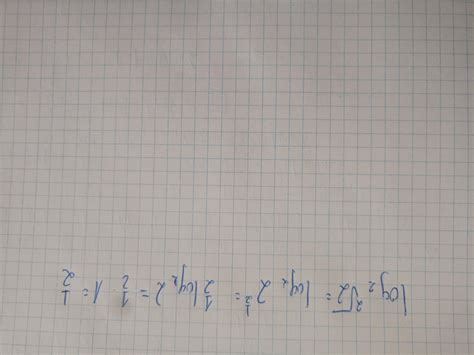 log₂ ²√2 = log₂ 2^½ = ½ log₂ 2 = ½ · 1 = ½